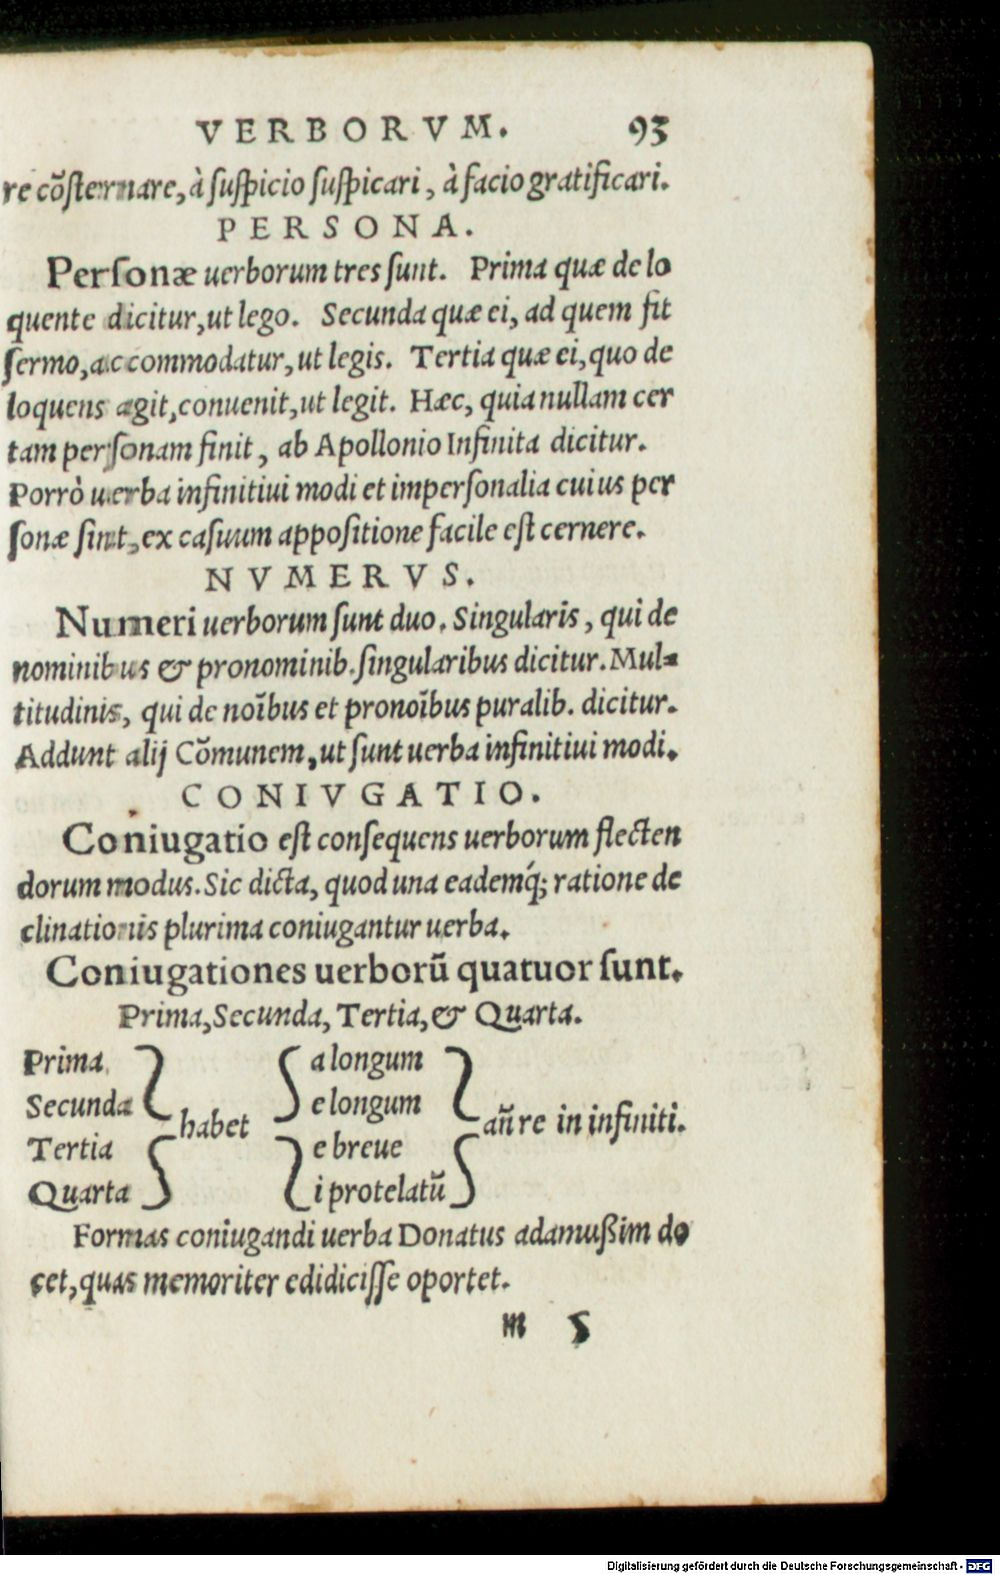 VERBORVM. 93
re cõsternare, à suspicio suspicari, à facio gratificari.
PERSONA.
Personæ uerborum tres sunt. Prima quæ de lo
quente dicitur, ut lego. Secunda quæ ei, ad quem fit
sermo, accommodatur, ut legis. Tertia quæ ei, quo de
loquens agit, conuenit, ut legit. Hæc, quia nullam cer
tam personam finit, ab Apollonio Infinita dicitur.
Porrò uerba infinitiui modi et impersonalia cuius per
sonæ sint, ex casuum appositione facile est cernere.
NVMERVS.
Numeri uerborum sunt duo. Singularis, qui de
nominibus & pronominib. singularibus dicitur. Mul=
titudinis, qui de noĩbus et pronoĩbus puralib. dicitur.
Addunt alij Cõmunem, ut sunt uerba infinitiui modi.
CONIVGATIO.
Coniugatio est consequens uerborum flecten
dorum modus. Sic dicta, quod una eademq́; ratione de
clinationis plurima coniugantur uerba.
Coniugationes uerborũ quatuor sunt.
Prima, Secunda, Tertia, & Quarta.
Prima a longum
Secunda e longum
habet añ re in infiniti.
Tertia e breue
Quarta i protelatũ
Formas coniugandi uerba Donatus adamußim do
cet, quas memoriter edidicisse oportet.
m 5
Digitalisierung gefördert durch die Deutsche Forschungsgemeinschaft - DFG